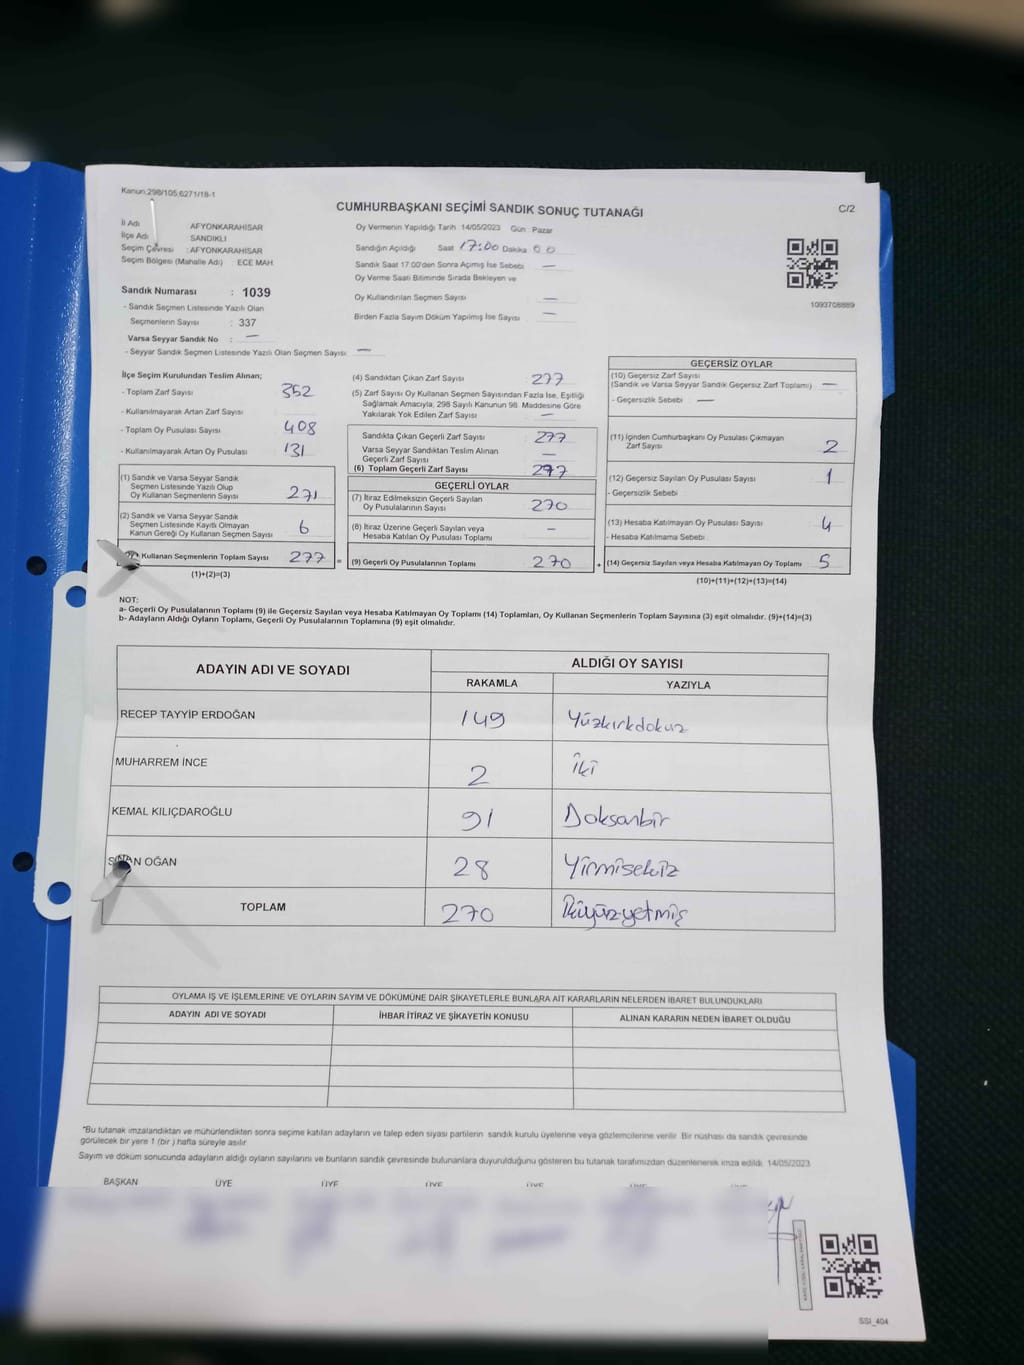 Kanun:298/105;6271/18-1
CUMHURBAŞKANI SEÇİMİ SANDIK SONUÇ TUTANAĞI
C/2
İl Adı : AFYONKARAHİSAR
İlçe Adı : SANDIKLI
Seçim Çevresi : AFYONKARAHİSAR
Seçim Bölgesi (Mahalle Adı) : ECE MAH.
Sandık Numarası : 1039
- Sandık Seçmen Listesinde Yazılı Olan
Seçmenlerin Sayısı : 337
Varsa Seyyar Sandık No : —
- Seyyar Sandık Seçmen Listesinde Yazılı Olan Seçmen Sayısı: —
Oy Vermenin Yapıldığı Tarih 14/05/2023 Gün : Pazar
Sandığın Açıldığı Saat 17:00 Dakika 00
Sandık Saat 17:00'den Sonra Açımış İse Sebebi —
Oy Verme Saati Bitiminde Sırada Bekleyen ve
Oy Kullandırılan Seçmen Sayısı —
Birden Fazla Sayım Döküm Yapılmış İse Sayısı —
1093708889
İlçe Seçim Kurulundan Teslim Alınan;
- Toplam Zarf Sayısı 352
- Kullanılmayarak Artan Zarf Sayısı
- Toplam Oy Pusulası Sayısı 408
- Kullanılmayarak Artan Oy Pusulası 131
(1) Sandık ve Varsa Seyyar Sandık
Seçmen Listesinde Yazılı Olup
Oy Kullanan Seçmenlerin Sayısı 271
(2) Sandık ve Varsa Seyyar Sandık
Seçmen Listesinde Kayıtlı Olmayan
Kanun Gereği Oy Kullanan Seçmen Sayısı 6
Kullanan Seçmenlerin Toplam Sayısı 277 =
(1)+(2)=(3)
(4) Sandıktan Çıkan Zarf Sayısı 277
(5) Zarf Sayısı Oy Kullanan Seçmen Sayısından Fazla İse, Eşitliği
Sağlamak Amacıyla, 298 Sayılı Kanunun 98. Maddesine Göre
Yakılarak Yok Edilen Zarf Sayısı —
Sandıkta Çıkan Geçerli Zarf Sayısı 277
Varsa Seyyar Sandıktan Teslim Alınan
Geçerli Zarf Sayısı —
(6) Toplam Geçerli Zarf Sayısı 277
GEÇERLİ OYLAR
(7) İtiraz Edilmeksizin Geçerli Sayılan
Oy Pusulalarının Sayısı 270
(8) İtiraz Üzerine Geçerli Sayılan veya
Hesaba Katılan Oy Pusulası Toplamı —
(9) Geçerli Oy Pusulalarının Toplamı 270 +
GEÇERSİZ OYLAR
(10) Geçersiz Zarf Sayısı
(Sandık ve Varsa Seyyar Sandık Geçersiz Zarf Toplamı) —
- Geçersizlik Sebebi : —
(11) İçinden Cumhurbaşkanı Oy Pusulası Çıkmayan
Zarf Sayısı 2
(12) Geçersiz Sayılan Oy Pusulası Sayısı 1
- Geçersizlik Sebebi :
(13) Hesaba Katılmayan Oy Pusulası Sayısı 4
- Hesaba Katılmama Sebebi :
(14) Geçersiz Sayılan veya Hesaba Katılmayan Oy Toplamı 5
(10)+(11)+(12)+(13)=(14)
NOT:
a- Geçerli Oy Pusulalarının Toplamı (9) ile Geçersiz Sayılan veya Hesaba Katılmayan Oy Toplamı (14) Toplamları, Oy Kullanan Seçmenlerin Toplam Sayısına (3) eşit olmalıdır. (9)+(14)=(3)
b- Adayların Aldığı Oyların Toplamı, Geçerli Oy Pusulalarının Toplamına (9) eşit olmalıdır.
ADAYIN ADI VE SOYADI
ALDIĞI OY SAYISI
RAKAMLA YAZIYLA
RECEP TAYYİP ERDOĞAN 149 Yüzkırkdokuz
MUHARREM İNCE 2 İki
KEMAL KILIÇDAROĞLU 91 Doksanbir
SİNAN OĞAN 28 Yirmisekiz
TOPLAM 270 İkiyüzyetmiş
OYLAMA İŞ VE İŞLEMLERİNE VE OYLARIN SAYIM VE DÖKÜMÜNE DAİR ŞİKAYETLERLE BUNLARA AİT KARARLARIN NELERDEN İBARET BULUNDUKLARI
ADAYIN ADI VE SOYADI İHBAR İTİRAZ VE ŞİKAYETİN KONUSU ALINAN KARARIN NEDEN İBARET OLDUĞU
*Bu tutanak imzalandıktan ve mühürlendikten sonra seçime katılan adayların ve talep eden siyasi partilerin sandık kurulu üyelerine veya gözlemcilerine verilir. Bir nüshası da sandık çevresinde
görülecek bir yere 1 (bir ) hafta süreyle asılır.
Sayım ve döküm sonucunda adayların aldığı oyların sayılarını ve bunların sandık çevresinde bulunanlara duyurulduğunu gösteren bu tutanak tarafımızdan düzenlenerek imza edildi. 14/05/2023
BAŞKAN ÜYE ÜYE ÜYE ÜYE ÜYE ÜYE
SSI_404